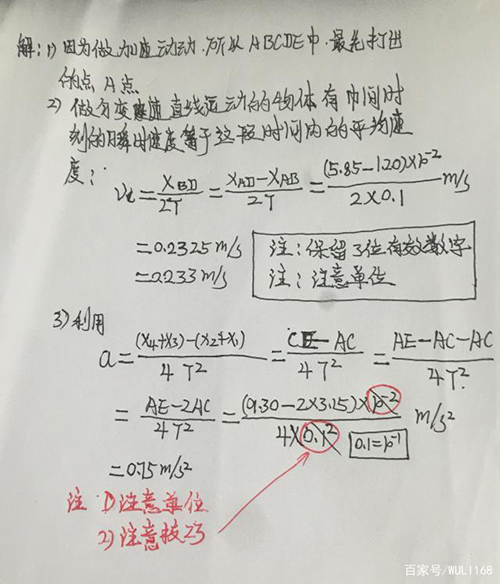 解：1) 因为做加速运动，所以ABCDE中，最先打出
的点A点
2) 做匀变速直线运动的物体有中间时
刻的瞬时速度等于这段时间内的平均速
度：
Vc = X_BD/2T = (X_AD-X_AB)/2T = (5.85-1.20)×10⁻²/(2×0.1) m/s
=0.2325m/s
=0.233m/s
注：保留3位有效数字
注：注意单位
3) 利用
a = ((X4+X3)-(X2+X1))/4T² = (CE-AC)/4T² = (AE-AC-AC)/4T²
= (AE-2AC)/4T² = (9.30-2×3.15)×10⁻²/(4×0.1²) m/s²
0.1=10⁻¹
=0.75m/s²
注 1) 注意单位
2) 注意技巧
百家号/WULI168